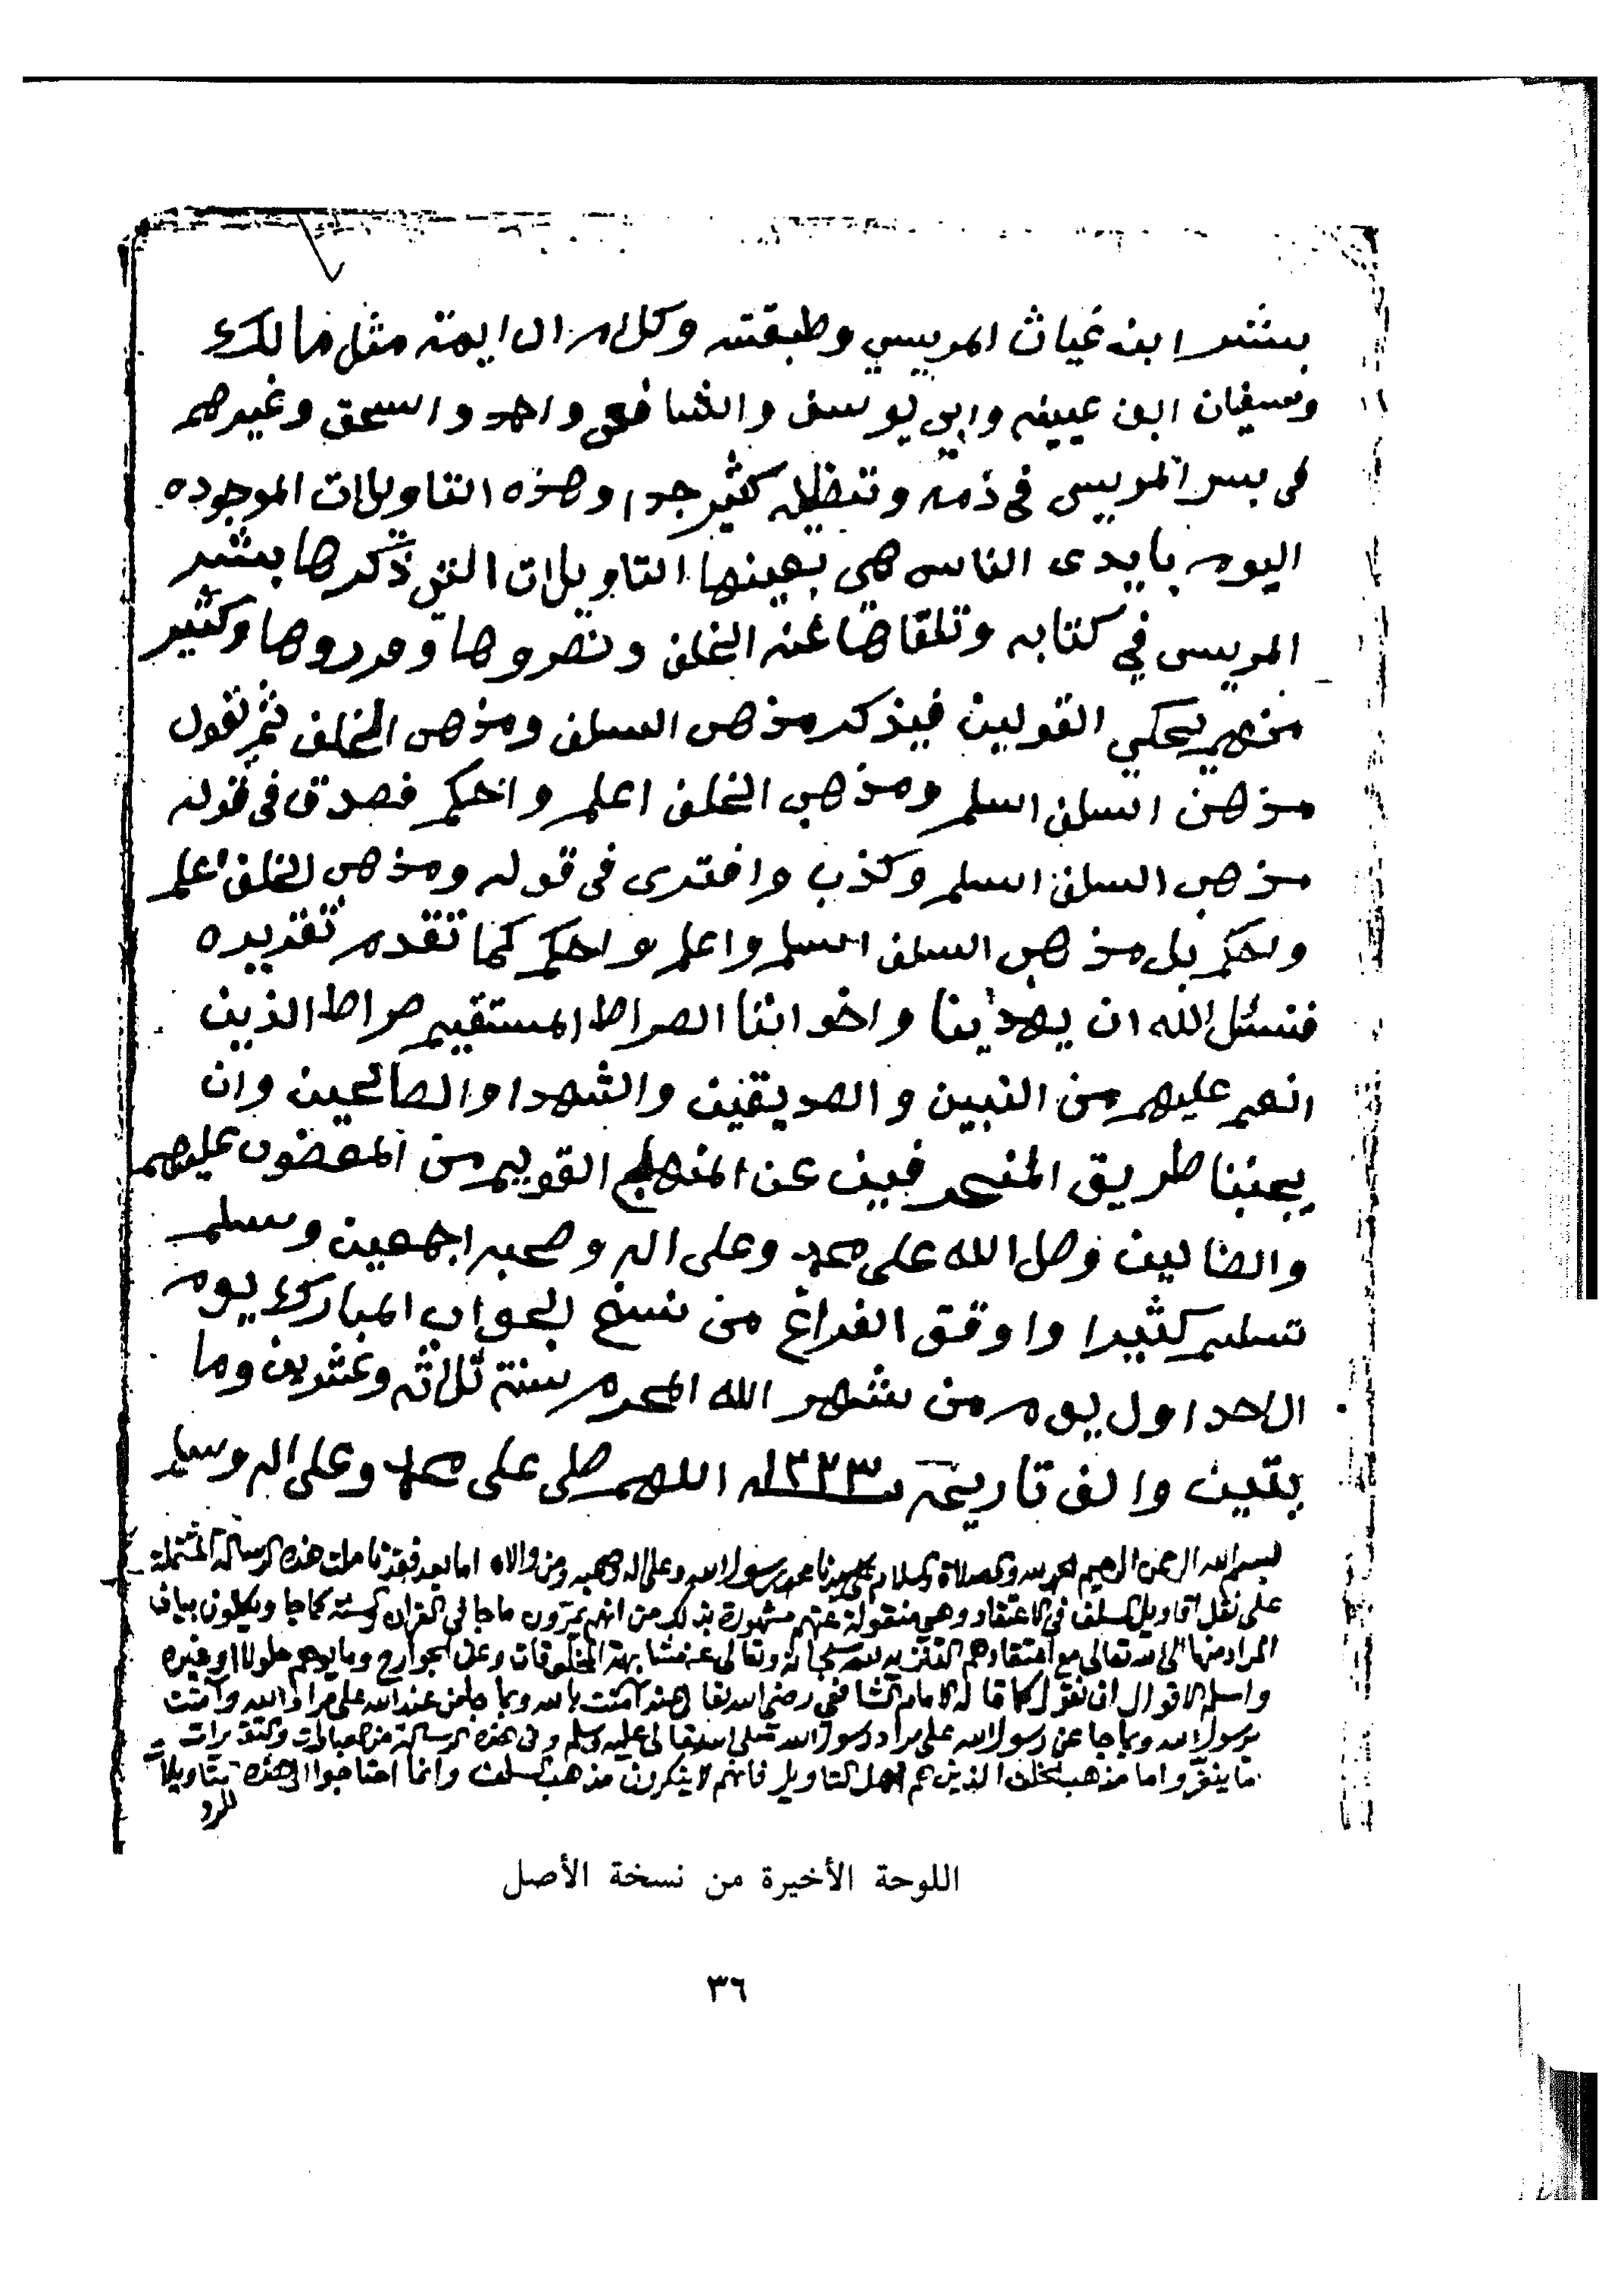 بشر ابن غياث المريسي وطبقته وكلام الايمة مثل مالك
وسفيان ابن عيينه وابي يوسف والشافعي واحمد واسحق وغيرهم
في بسر المريسي في ذمه وتضليله كثير جدا وهذه التاويلات الموجوده
اليوم بايدى الناس هي بعينها التاويلات التي ذكرها بشر
المريسي في كتابه وتلقاها عنه الخلف ونصروها وقرروها وكثير
منهم يحكي القولين فيذكر مذهب السلف ومذهب الخلف ثم نقول
مذهب السلف اسلم ومذهب الخلف اعلم واحكم فصدق في قوله
مذهب السلف اسلم وكذب وافترى في قوله ومذهب الخلف اعلم
واحكم بل مذهب السلف اسلم واعلم واحكم كما تقدم تقريره
فنسئل الله ان يهدينا واخواننا الصراط المستقيم صراط الذين
انعم عليهم من النبين والصديقين والشهدا والصالحين وان
يجنبنا طريق المنحرفين عن المنهاج القويم من المغضوب عليهم
والضالين وصل الله على محمد وعلى اله وصحبه اجمعين وسلم
تسليم كثيرا واوفق الفراغ من نسخ الجواب المبارك يوم
الاحد اول يوم من شهر الله المحرم سنة ثلاثه وعشرين وما
يتين والف تاريخه ١٢٢٣ اللهم صلى على محمد وعلى اله وسلم
بسم الله الرحمن الرحيم الحمد لله والصلاة والسلام على سيدنا محمد رسول الله وعلى اله وصحبه ومن والاه اما بعد فقد تاملت هذه الرسالة المشتملة
على نقل اقاويل السلف في الاعتقاد وهي منقولة عنهم مشهورة بذلك من انهم يمرون ما جا في القران والسنة كما جا ويكلون بيان
المراد منها الى الله تعالى مع اعتقادهم التنزيه لله سبحانه وتعالى عن مشابهة المخلوقات وعن الجوارح وما يوهم حلولا او غيره
واسلم الاقوال ان نقول كما قاله الامام الشافعي رضي الله تعالى عنه آمنت بالله وبما جا من عند الله على مراد الله وآمنت
برسول الله وبما جا عن رسول الله على مراد رسول الله صلى الله تعالى عليه وسلم وفي هذه الرسالة من العبارات والتقريرات
ما ينفر واما مذهب الخلف الذين هم اهل التاويل فانهم لا ينكرون مذهب السلف وانما احتاجوا الى هذه التاويلات
للرد
اللوحة الأخيرة من نسخة الأصل
٣٦